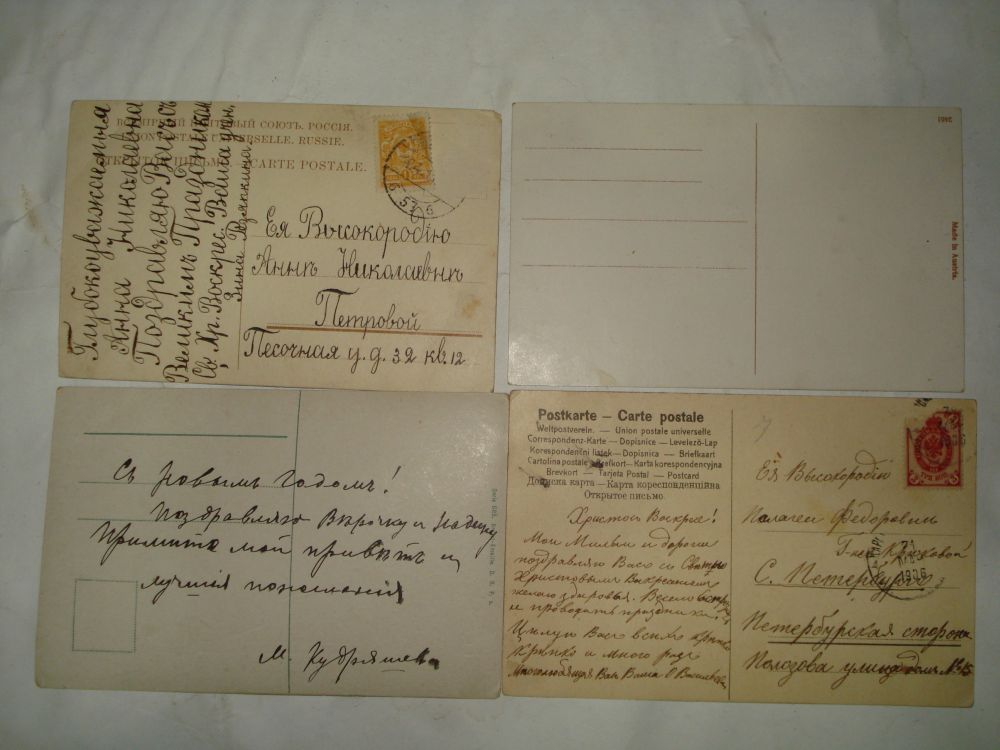 ВСЕМІРНЫЙ ПОЧТОВЫЙ СОЮЗЪ. РОССІЯ.
UNION POSTALE UNIVERSELLE. RUSSIE.
ОТКРЫТОЕ ПИСЬМО. — CARTE POSTALE.
Глубокоуважаемая
Анна Николаевна
Поздравляю Васъ съ
Великимъ Праздником
Св. Хр. Воскрес. Ваша учен.
Зина
Ея Высокородію
Аннѣ Николаевнѣ
Петровой
Песочная у. д. 32 кв. 12
2461
Made in Austria.
Съ Новымъ Годомъ!
Поздравляю Вѣрочку и Надину
Примите мой привѣтъ и
лучшія пожеланія
М. Кудряшева
Postkarte — Carte postale
Weltpostverein. — Union postale universelle
Correspondenz-Karte — Dopisnice — Levelező-Lap
Korespondenční lístek — Dopisnica — Briefkaart
Cartolina postale — Brefkort — Karta korespondencyjna
Brevkort — Tarjeta Postal — Postcard
Дописна карта — Карта кореспонденційна
Открытое письмо.
Христосъ Воскресе!
Мои Милыи и дороги
поздравляю Васъ со Светло
Христовымъ Воскресением
желаю здоровья. Весело встр
и проводать праздники!
Цѣлую Васъ всѣхъ крѣпко
крѣпко и много разъ
Многолюбящая Васъ Ваша О Васильев
7
Её Высокородію
Палагеи Федоровнѣ
Г-жѣ Крюковой
С. Петербургъ
Петербурская сторона
Полозова улица домъ № 15
1906